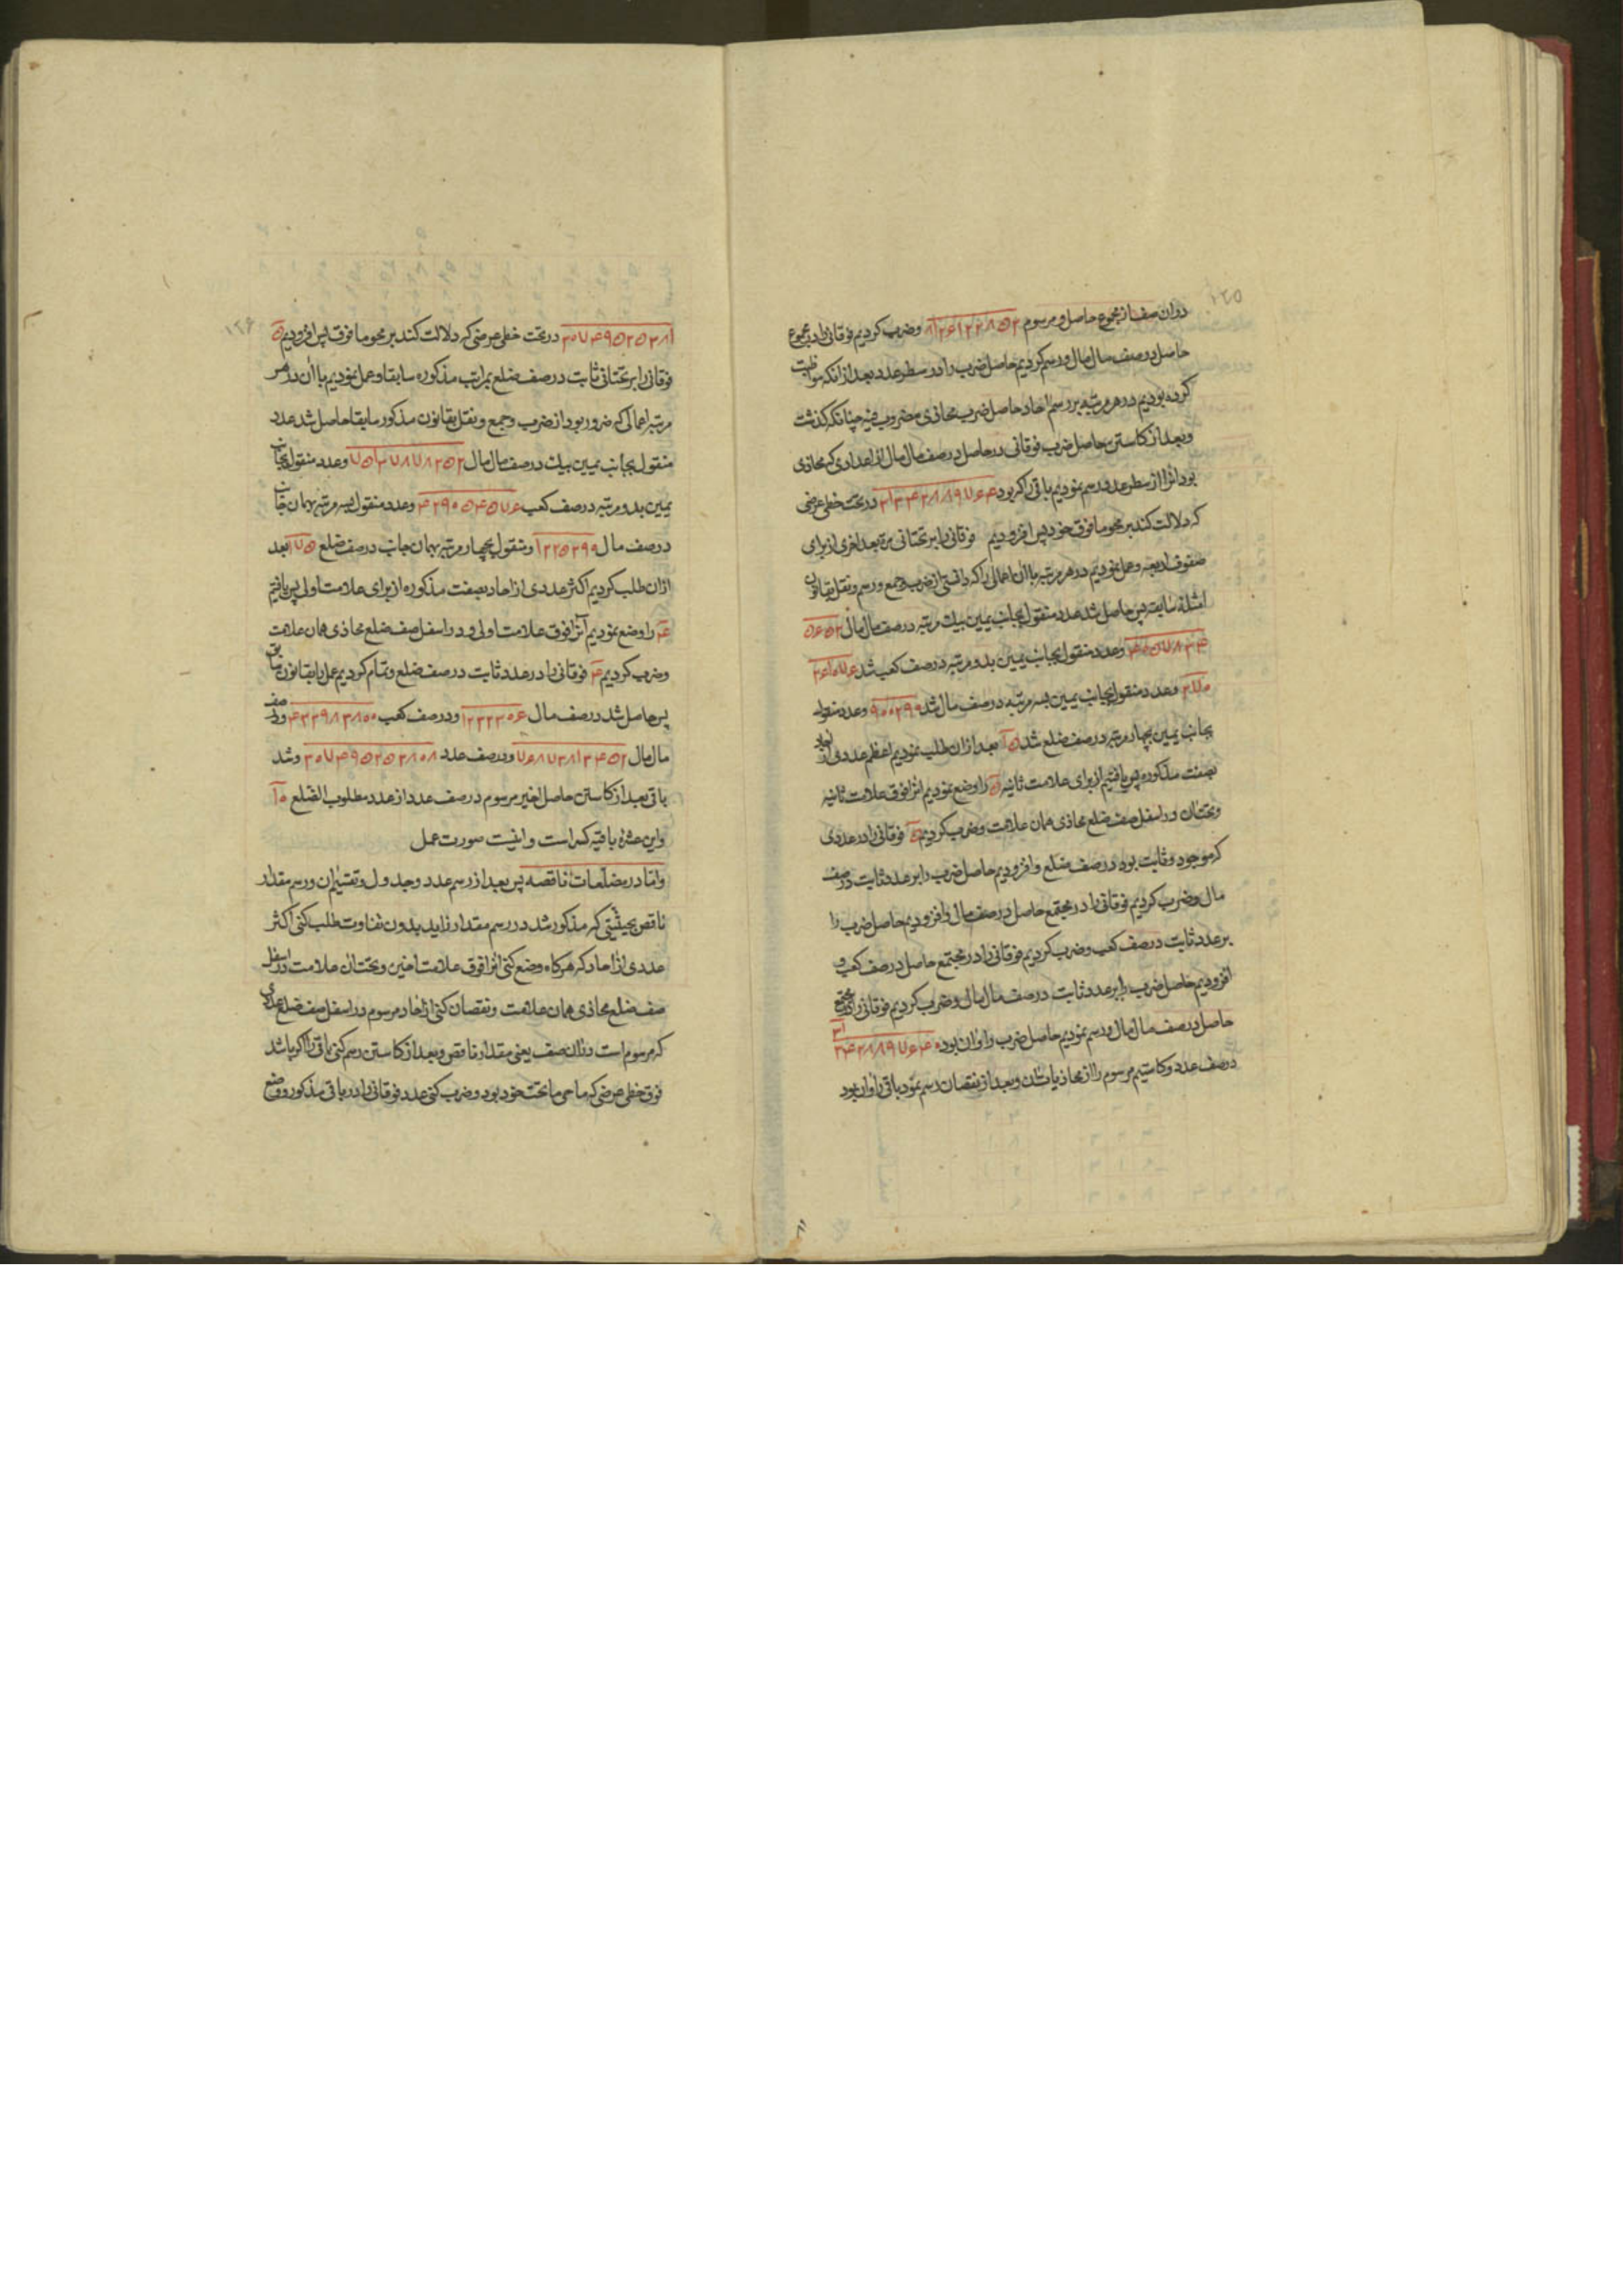 ١٢٥
در ان صف از مجموع حاصل و مرسوم وضرب کردیم فوقانی را در مجموع
حاصل در صف مال مال و رسم کردیم حاصل ضرب را در سطر عدد بعد از انکه مواظبت
کرده بودیم در هر مرتبه بر رسم احاد حاصل ضرب محاذی مضروب فیه چنانکه کذشت
و بعد از کاستن حاصل ضرب فوقانی در حاصل در صف مال مال از اعدادی که محاذی
بود انرا از سطر عدد رسم نمودیم باقی را که بود در تحت خطی عرضی
که دلالت کند بر محو ما فوق خود پس افزودیم فوقانی را بر تحتانی مرة بعد اخری از برای
صفوف اربعه و عمل نمودیم در هر مرتبه با ان اعمالی را که دانستی از ضرب و جمع و رسم و نقل بقانون
امثلهٔ سابقه پس حاصل شد عدد منقول بجانب یمین بیک مرتبه در صف مال مال
وعدد منقول بجانب یمین بدو مرتبه در صف کعب شد
وعدد منقول بجانب یمین بسه مرتبه در صف مال شد ٩٠٠٢٩٩ وعدد منقول
بجانب یمین بچهار مرتبه در صف ضلع شد بعد از ان طلب نمودیم اعظم عددی از احاد
بصفت مذکوره پس یافتیم از برای علامت ثانیه ۵ را وضع نمودیم انرا فوق علامت ثانیه
و تحتان و در اسفل صف ضلع محاذی همان علامت وضرب کردیم ۵ فوقانی را در عددی
که موجود و ثابت بود در صف ضلع و افزودیم حاصل ضرب را بر عدد ثابت در صف
مال وضرب کردیم فوقانی را در مجتمع حاصل در صف مال و افزودیم حاصل ضرب را
بر عدد ثابت در صف کعب وضرب کردیم فوقانی را در مجتمع حاصل در صف کعب و
افزودیم حاصل ضرب را بر عدد ثابت در صف مال مال وضرب کردیم فوقانی را در مجتمع
حاصل در صف مال مال و رسم نمودیم حاصل ضرب را و ان بود
در صف عدد و کاستیم مرسوم را از محاذیات ان و بعد از نقصان رسم نمود باقی را و ان بود
١٢۶
٣٠٧۴٩۵٢۵٣٨١ در تحت خطی عرضی که دلالت کند بر محو ما فوق پس افزودیم ۵
فوقانی را بر تحتانی ثابت در صف ضلع بمراتب مذکوره سابقا و عمل نمودیم با ان در هر
مرتبه اعمالی که ضرور بود از ضرب و جمع و نقل بقانون مذکور سابقا حاصل شد عدد
منقول بجانب یمین بیک در صف مال مال ٧۵٣٧٨٧٨٢۵٢ وعدد منقول بجانب
یمین بدو مرتبه در صف کعب ۴٢٩٠۵۴۵٧۶ وعدد منقول بسه مرتبه بهمان جانب
در صف مال ١٢٢۵٢٩٩ ومنقول بچهار مرتبه بهمان جانب در صف ضلع ١٧۵ بعد
ازان طلب کردیم اکثر عددی از احاد بصفت مذکوره از برای علامت اولی پس یافتیم
۴ را وضع نمودیم آنرا فوق علامت اولی و در اسفل صف ضلع محاذی همان علامت
وضرب کردیم ۴ فوقانی را در عدد ثابت در صف ضلع و تمام کردیم عمل را بقانون سابق
پس حاصل شد در صف مال ١٢٣٢٣٠۶ ودر صف کعب ۴٣٣٩٨٣٨٠٠ ودر صف
مال مال ٧۶٨٧٣٨١٣۴۵٢ ودر صف عدد ٣٠٧۴٩۵٢۵٣٨٠٨ وشد
باقی بعد از کاستن حاصل اخیر مرسوم در صف عدد از عدد مطلوب الضلع ١٠
واین عشرهٔ باقیه کسر است و اینست صورت عمل
واما در مضلعات ناقصه پس بعد از رسم عدد و جدول و تقسیم ان و رسم مقدار
ناقص بحیثیتی که مذکور شد در رسم مقدار زاید بدون تفاوت طلب کنی اکثر
عددی از احاد که هرکاه وضع کنی انرا فوق علامت اخیره و تحتان علامت در اسفل
صف ضلع محاذی همان علامت و نقصان کنی از احاد مرسوم در اسفل صف ضلع عددی
که مرسوم است در ان صف یعنی مقدار ناقص و بعد از کاستن رسم کنی باقی را اکر باشد
فوق خطی عرضی که ماحی ما تحت خود بود و ضرب کنی عدد فوقانی را در باقی مذکور و وضع